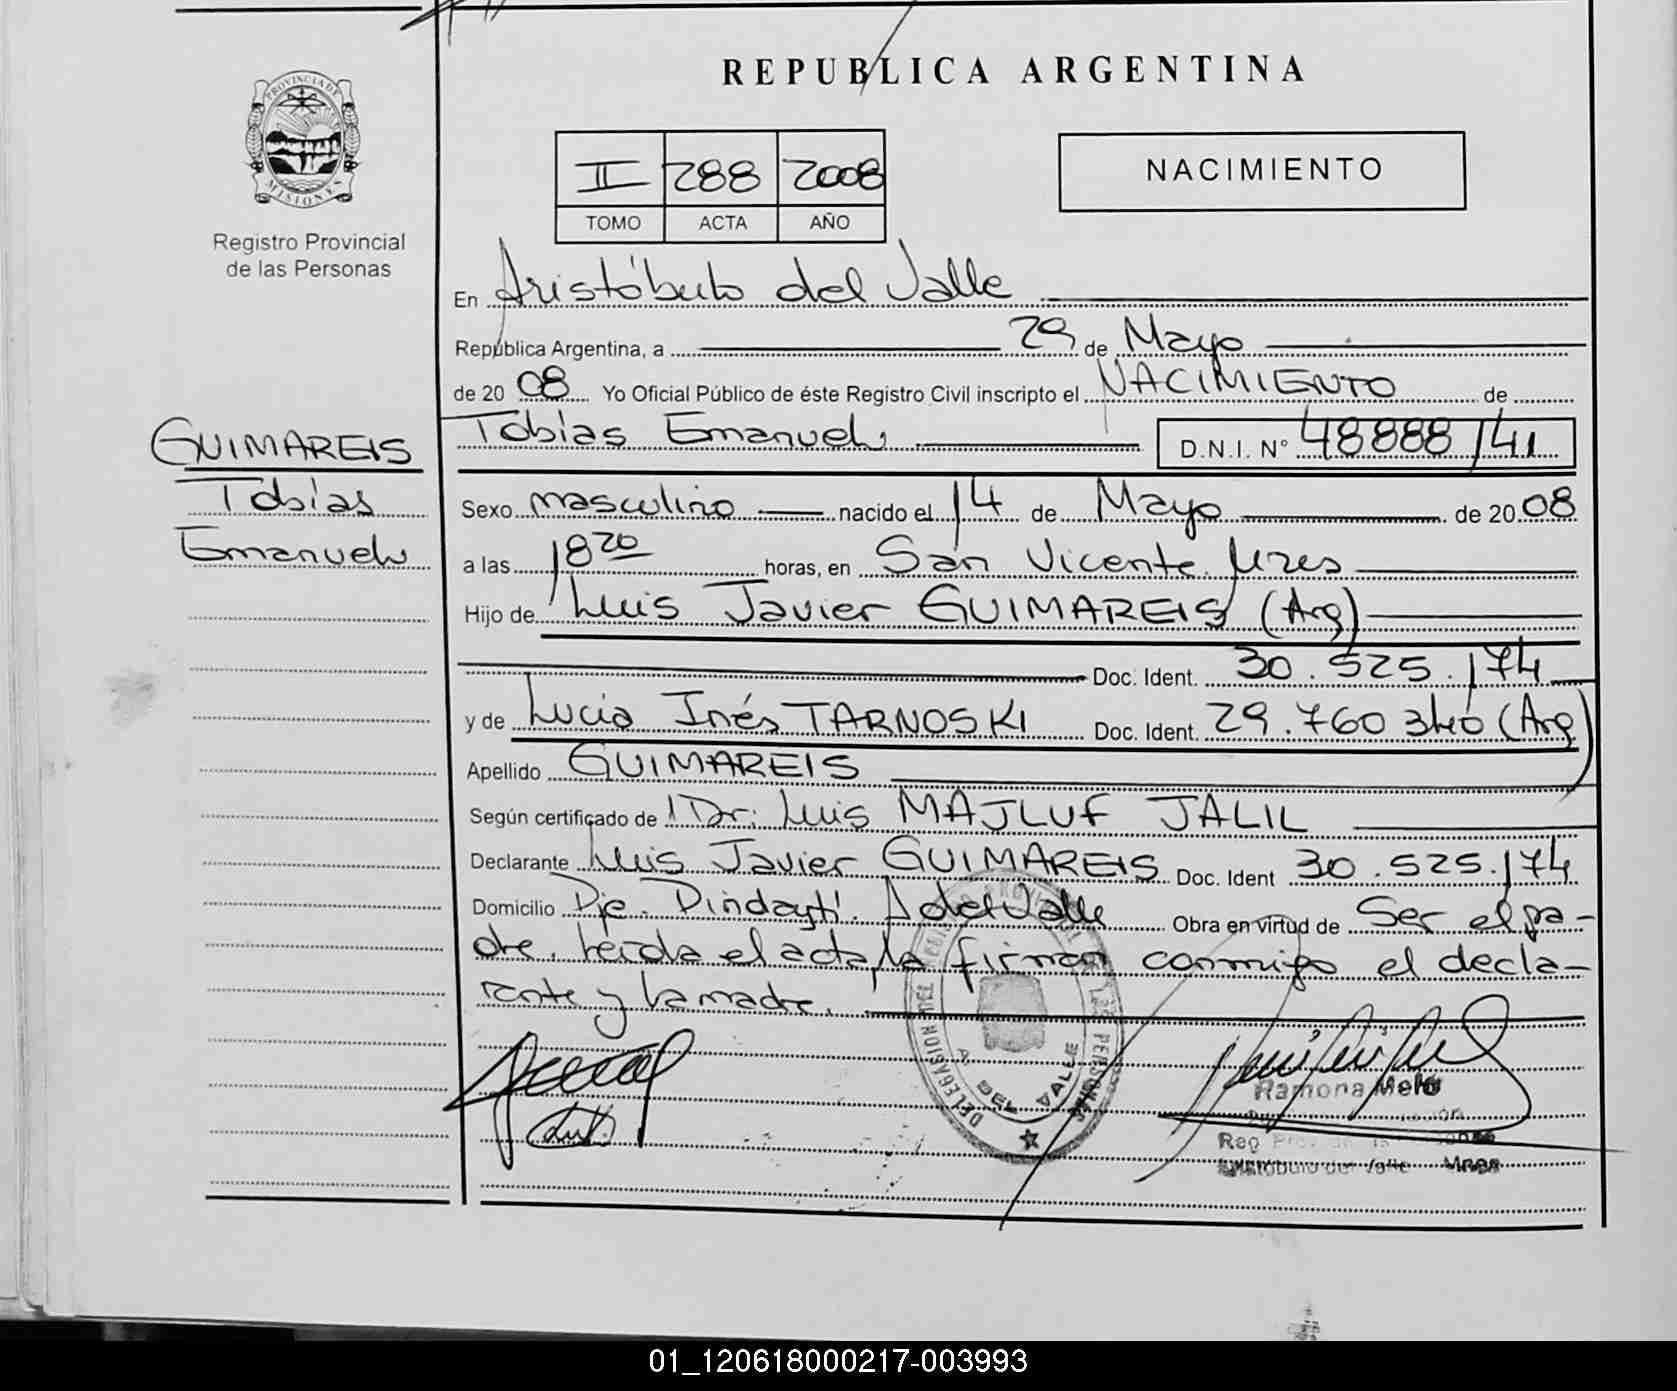 REPUBLICA ARGENTINA
PROVINCIA DE MISIONES
Registro Provincial
de las Personas
II 288 2008
TOMO ACTA AÑO
NACIMIENTO
En Aristóbulo del Valle
República Argentina, a 29 de Mayo
de 20 08 Yo Oficial Público de éste Registro Civil inscripto el NACIMIENTO de
Tobías Emanuel D.N.I. N° 48888141
GUIMAREIS
Tobías
Emanuel
Sexo masculino nacido el 14 de Mayo de 20 08
a las 18 20 horas, en San Vicente Mnes
Hijo de Luis Javier GUIMAREIS (Arg)
Doc. Ident. 30.525.174
y de Lucia Inés TARNOSKI Doc. Ident. 29.760 340 (Arg)
Apellido GUIMAREIS
Según certificado de Dr: Luis MAJLUF JALIL
Declarante Luis Javier GUIMAREIS Doc. Ident 30.525.174
Domicilio Pje. Pindaytí. A del Valle Obra en virtud de Ser el pa-
dre. Leida el acta, la firman conmigo el decla-
rante y la madre.
DELEGACION DEL REGISTRO PROVINCIAL DE LAS PERSONAS
A. DEL VALLE
Ramona Melo
Reg
Aristóbulo del Valle Mnes
01_120618000217-003993